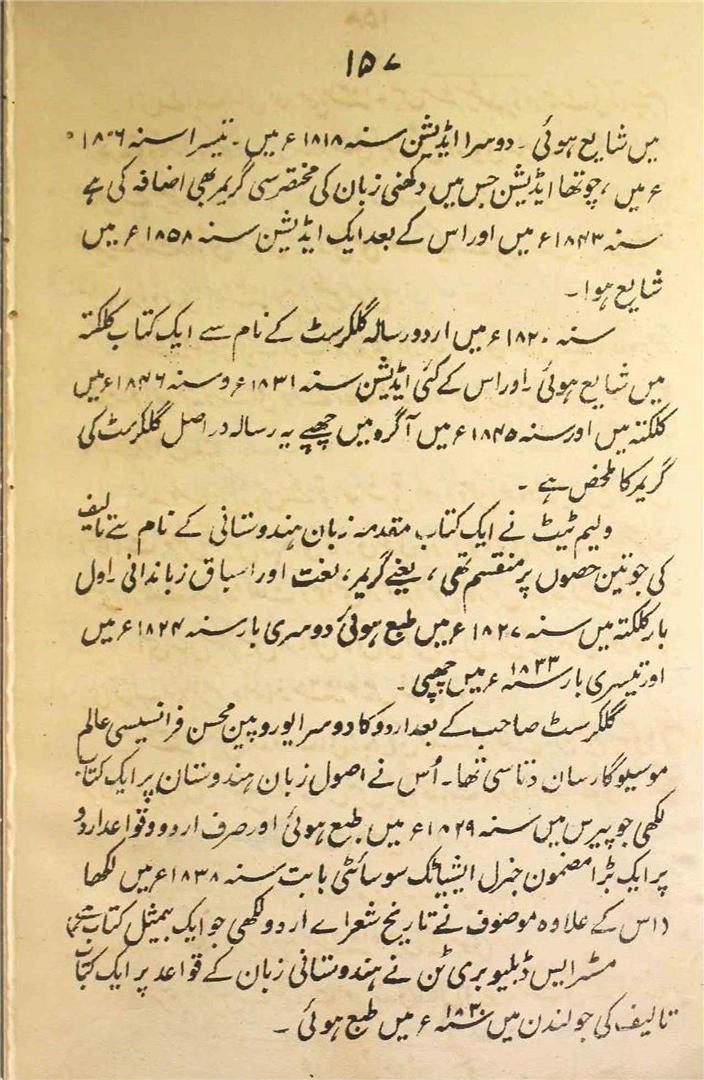 ۱۵۷
میں شایع ہوئی ۔ دوسرا ایڈیشن سنہ ۱۸۱۸ء میں ۔ تیسرا سنہ ۱۸۰۶
ء میں ، چوتھا ایڈیشن جس میں دکھنی زبان کی مختصر سی گریمر بھی اضافہ کی ہے
سنہ ۱۸۴۳ء میں اور اس کے بعد ایک ایڈیشن سنہ ۱۸۵۸ء میں
شایع ہوا ۔
سنہ ۱۸۲۰ء میں اردو رسالہ گلکرسٹ کے نام سے ایک کتاب کلکتہ
میں شایع ہوئی ۔ اور اس کے کئی ایڈیشن سنہ ۱۸۳۱ء و سنہ ۱۸۴۶ء میں
کلکتہ میں اور سنہ ۱۸۴۵ء میں آگرہ میں چھپے یہ رسالہ در اصل گلکرسٹ کی
گریمر کا ملخص ہے ۔
ولیم ٹیٹ نے ایک کتاب مقدمہ زبان ہندوستانی کے نام سے تالیف
کی جو تین حصوں پر منقسم تھی ، یعنے گریمر ، لغت اور اسباق زباندانی ۔ اول
بار کلکتہ میں سنہ ۱۸۲۷ء میں طبع ہوئی دوسری بار سنہ ۱۸۲۴ء میں
اور تیسری بار سنہ ۱۸۳۳ء میں چھپی ۔
گلکرسٹ صاحب کے بعد اردو کا دوسرا یوروپین محسن فرانسیسی عالم
موسیو گارسان دتاسی تھا ۔ اُس نے اصول زبان ہندوستان پر ایک کتاب
لکھی جو پیرس میں سنہ ۱۸۲۹ء میں طبع ہوئی اور صرف اردو و قواعد اردو
پر ایک بڑا مضمون جنرل ایشیاٹک سوسائٹی بابت سنہ ۱۸۳۸ء میں لکھا
داس کے علاوہ موصوف نے تاریخ شعراے اردو لکھی جو ایک بیمثل کتاب ہے
مسٹر ایس ڈبلیو بری ٹن نے ہندوستانی زبان کے قواعد پر ایک کتاب
تالیف کی جو لندن میں سنہ ۱۸۳۰ء میں طبع ہوئی ۔